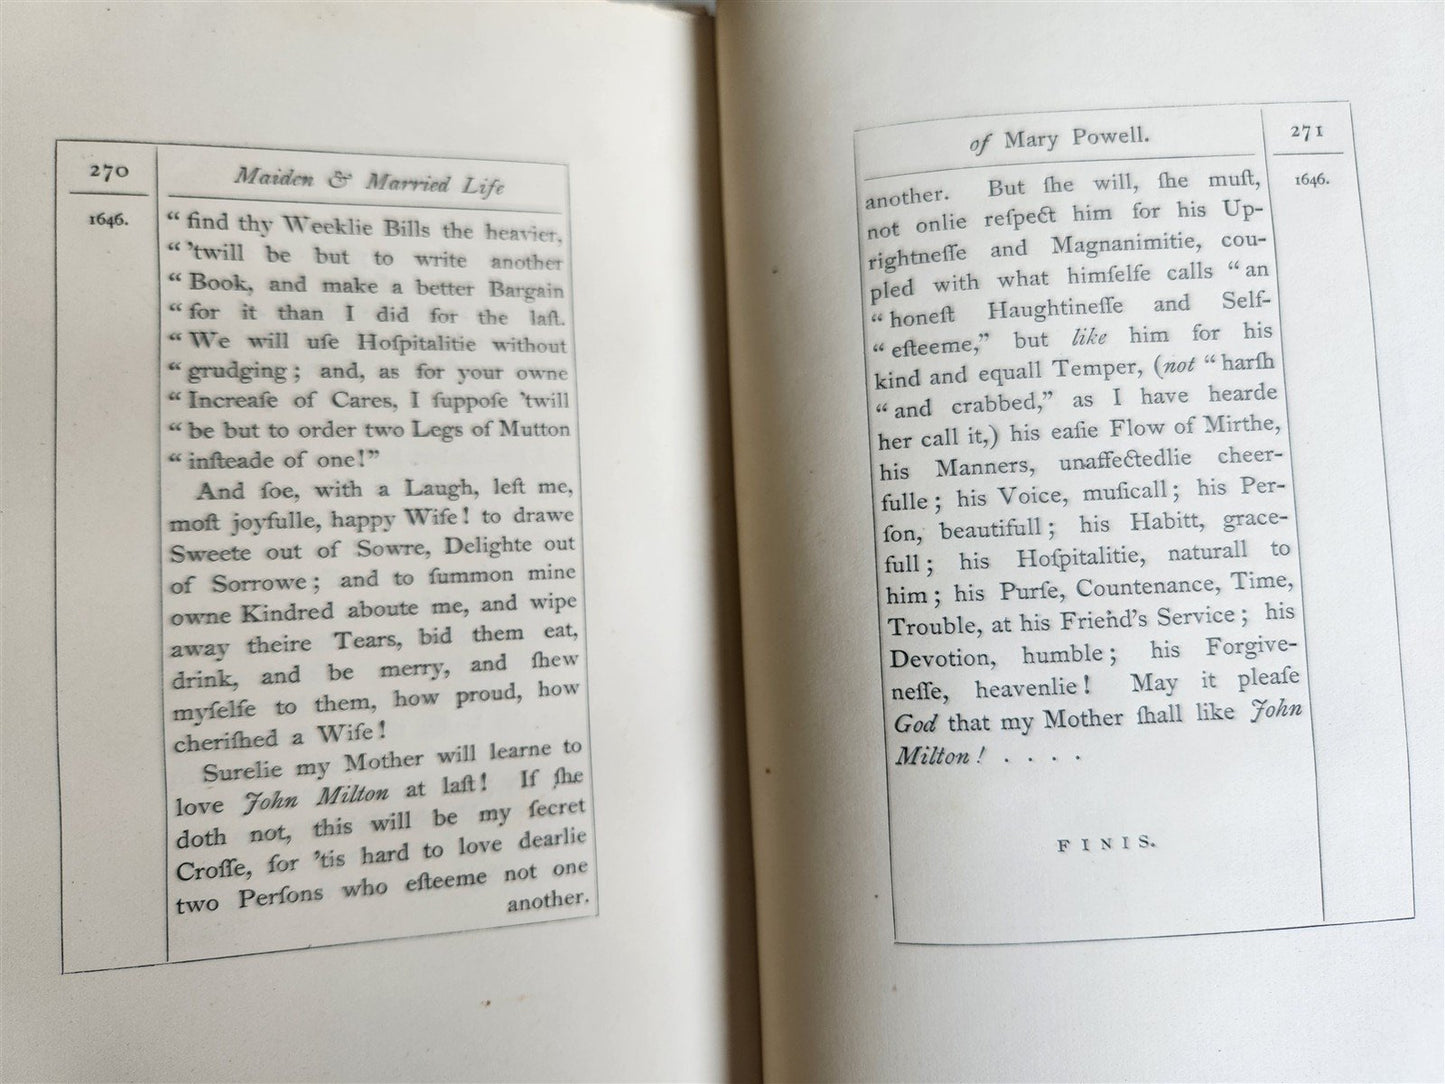 270
Maiden & Married Life
1646.
“ find thy Weeklie Bills the heavier,
“ ’twill be but to write another
“ Book, and make a better Bargain
“ for it than I did for the laſt.
“ We will uſe Hoſpitalitie without
“ grudging; and, as for your owne
“ Increaſe of Cares, I ſuppoſe ’twill
“ be but to order two Legs of Mutton
“ inſteade of one!”
And ſoe, with a Laugh, left me,
moſt joyfulle, happy Wife! to drawe
Sweete out of Sowre, Delighte out
of Sorrowe; and to ſummon mine
owne Kindred aboute me, and wipe
away theire Tears, bid them eat,
drink, and be merry, and ſhew
myſelfe to them, how proud, how
cheriſhed a Wife!
Surelie my Mother will learne to
love John Milton at laſt! If ſhe
doth not, this will be my ſecret
Croſſe, for ’tis hard to love dearlie
two Perſons who eſteeme not one
another.
of Mary Powell.
271
1646.
another. But ſhe will, ſhe muſt,
not onlie reſpect him for his Up-
rightneſſe and Magnanimitie, cou-
pled with what himſelfe calls “ an
“ honeſt Haughtineſſe and Self-
“ eſteeme,” but like him for his
kind and equall Temper, (not “ harſh
“ and crabbed,” as I have hearde
her call it,) his eaſie Flow of Mirthe,
his Manners, unaffectedlie cheer-
fulle; his Voice, muſicall; his Per-
ſon, beautifull; his Habitt, grace-
full; his Hoſpitalitie, naturall to
him; his Purſe, Countenance, Time,
Trouble, at his Friend’s Service; his
Devotion, humble; his Forgive-
neſſe, heavenlie! May it pleaſe
God that my Mother ſhall like John
Milton! . . . .
FINIS.